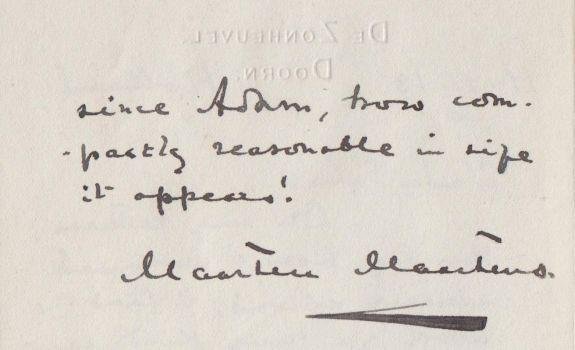 DE ZONHEUVEL.
DOORN.
since Adam, how com-
-pactly reasonable in size
it appears!
Maarten Maartens.